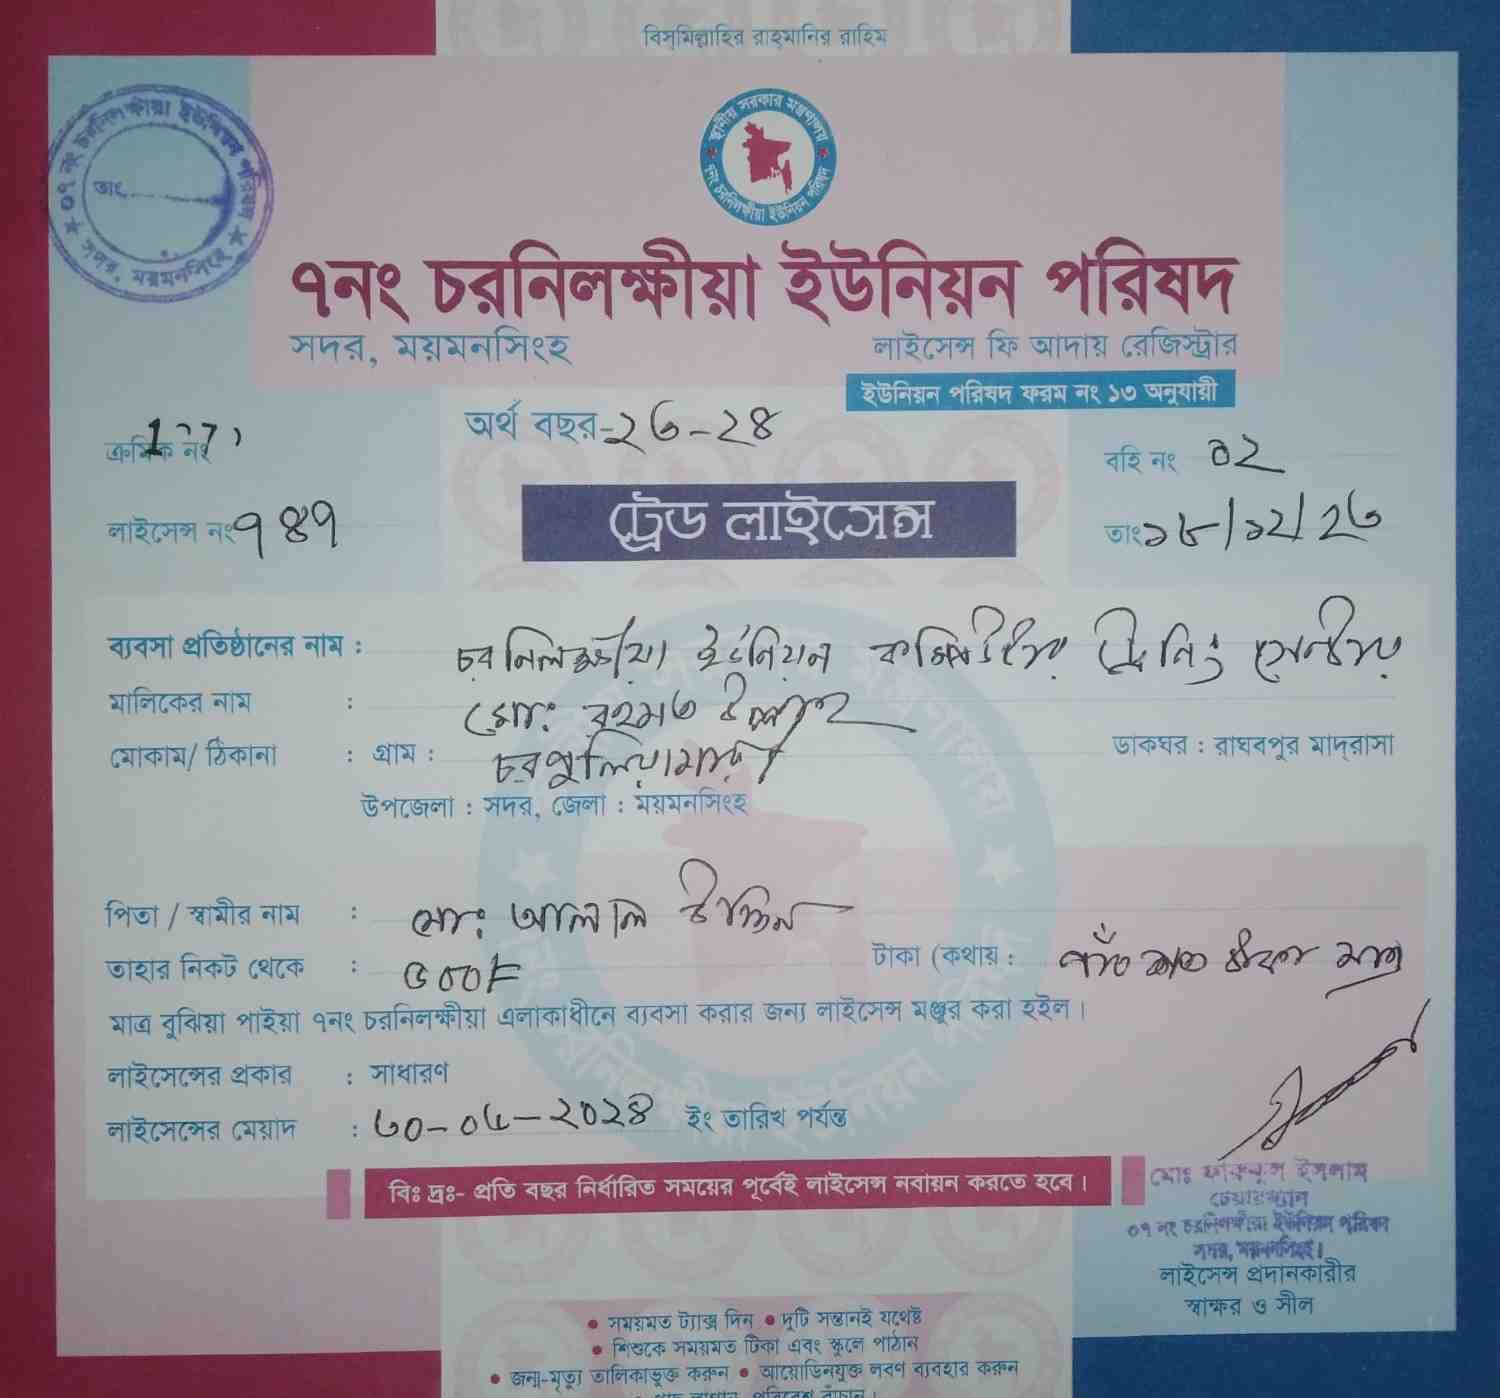 বিস্‌মিল্লাহির রাহ্‌মানির রাহিম
স্থানীয় সরকার মন্ত্রণালয়
৭নং চরনিলক্ষীয়া ইউনিয়ন পরিষদ
০৭ নং চরনিলক্ষীয়া ইউনিয়ন পরিষদ
তাং
সদর, ময়মনসিংহ
৭নং চরনিলক্ষীয়া ইউনিয়ন পরিষদ
সদর, ময়মনসিংহ
লাইসেন্স ফি আদায় রেজিস্ট্রার
ইউনিয়ন পরিষদ ফরম নং ১৩ অনুযায়ী
অর্থ বছর-২৩-২৪
ক্রমিক নং
বহি নং ০২
লাইসেন্স নং ৭৪৭
ট্রেড লাইসেন্স
তাং ১৮/১২/২৩
ব্যবসা প্রতিষ্ঠানের নাম : চরনিলক্ষীয়া ইউনিয়ন কম্পিউটার ট্রেনিং সেন্টার
মালিকের নাম : মোঃ রহমত উল্লাহ
মোকাম/ ঠিকানা : গ্রাম : চরপুলিয়ামারী ডাকঘর : রাঘবপুর মাদ্‌রাসা
উপজেলা : সদর, জেলা : ময়মনসিংহ
পিতা / স্বামীর নাম : মোঃ আলাল উদ্দিন
তাহার নিকট থেকে : ৫০০/= টাকা (কথায় : পাঁচ শত টাকা মাত্র
মাত্র বুঝিয়া পাইয়া ৭নং চরনিলক্ষীয়া এলাকাধীনে ব্যবসা করার জন্য লাইসেন্স মঞ্জুর করা হইল।
লাইসেন্সের প্রকার : সাধারণ
লাইসেন্সের মেয়াদ : ৩০-০৬-২০২৪ ইং তারিখ পর্যন্ত
বিঃ দ্রঃ- প্রতি বছর নির্ধারিত সময়ের পূর্বেই লাইসেন্স নবায়ন করতে হবে।
মোঃ ফারুকুল ইসলাম
চেয়ারম্যান
০৭ নং চরনিলক্ষীয়া ইউনিয়ন পরিষদ
সদর, ময়মনসিংহ।
লাইসেন্স প্রদানকারীর
স্বাক্ষর ও সীল
● সময়মত ট্যাক্স দিন ● দুটি সন্তানই যথেষ্ট
● শিশুকে সময়মত টিকা এবং স্কুলে পাঠান
● জন্ম-মৃত্যু তালিকাভুক্ত করুন ● আয়োডিনযুক্ত লবণ ব্যবহার করুন